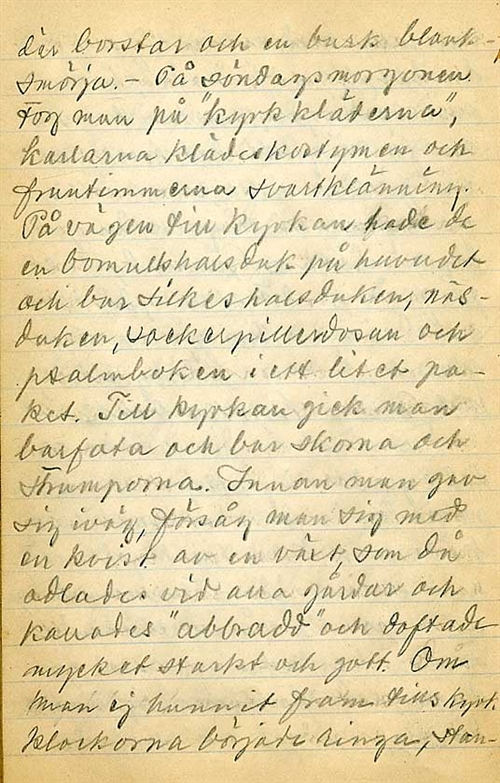 där borstar och en burk blank-
smörja. – På söndagsmorgonen
tog man på "kyrkkläderna",
karlarna klädeskostymen och
fruntimmerna svartklänning.
På vägen till kyrkan hade de
en bomullshalsduk på huvudet
och bar silkeshalsduken, näs-
duken, sockerpillerdosan och
psalmboken i ett litet pa-
ket. Till kyrkan gick man
barfota och bar skorna och
strumporna. Innan man gav
sig iväg, försåg man sig med
en kvist av en växt, som då
odlades vid alla gårdar och
kallades "abbradd" och doftade
mycket starkt och gott. Om
man ej hunnit fram tills kyrk
klockorna började ringa, stan-